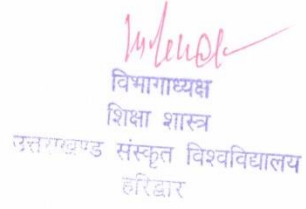 विभागाध्यक्ष
शिक्षा शास्त्र
उत्तराखण्ड संस्कृत विश्वविद्यालय
हरिद्वार